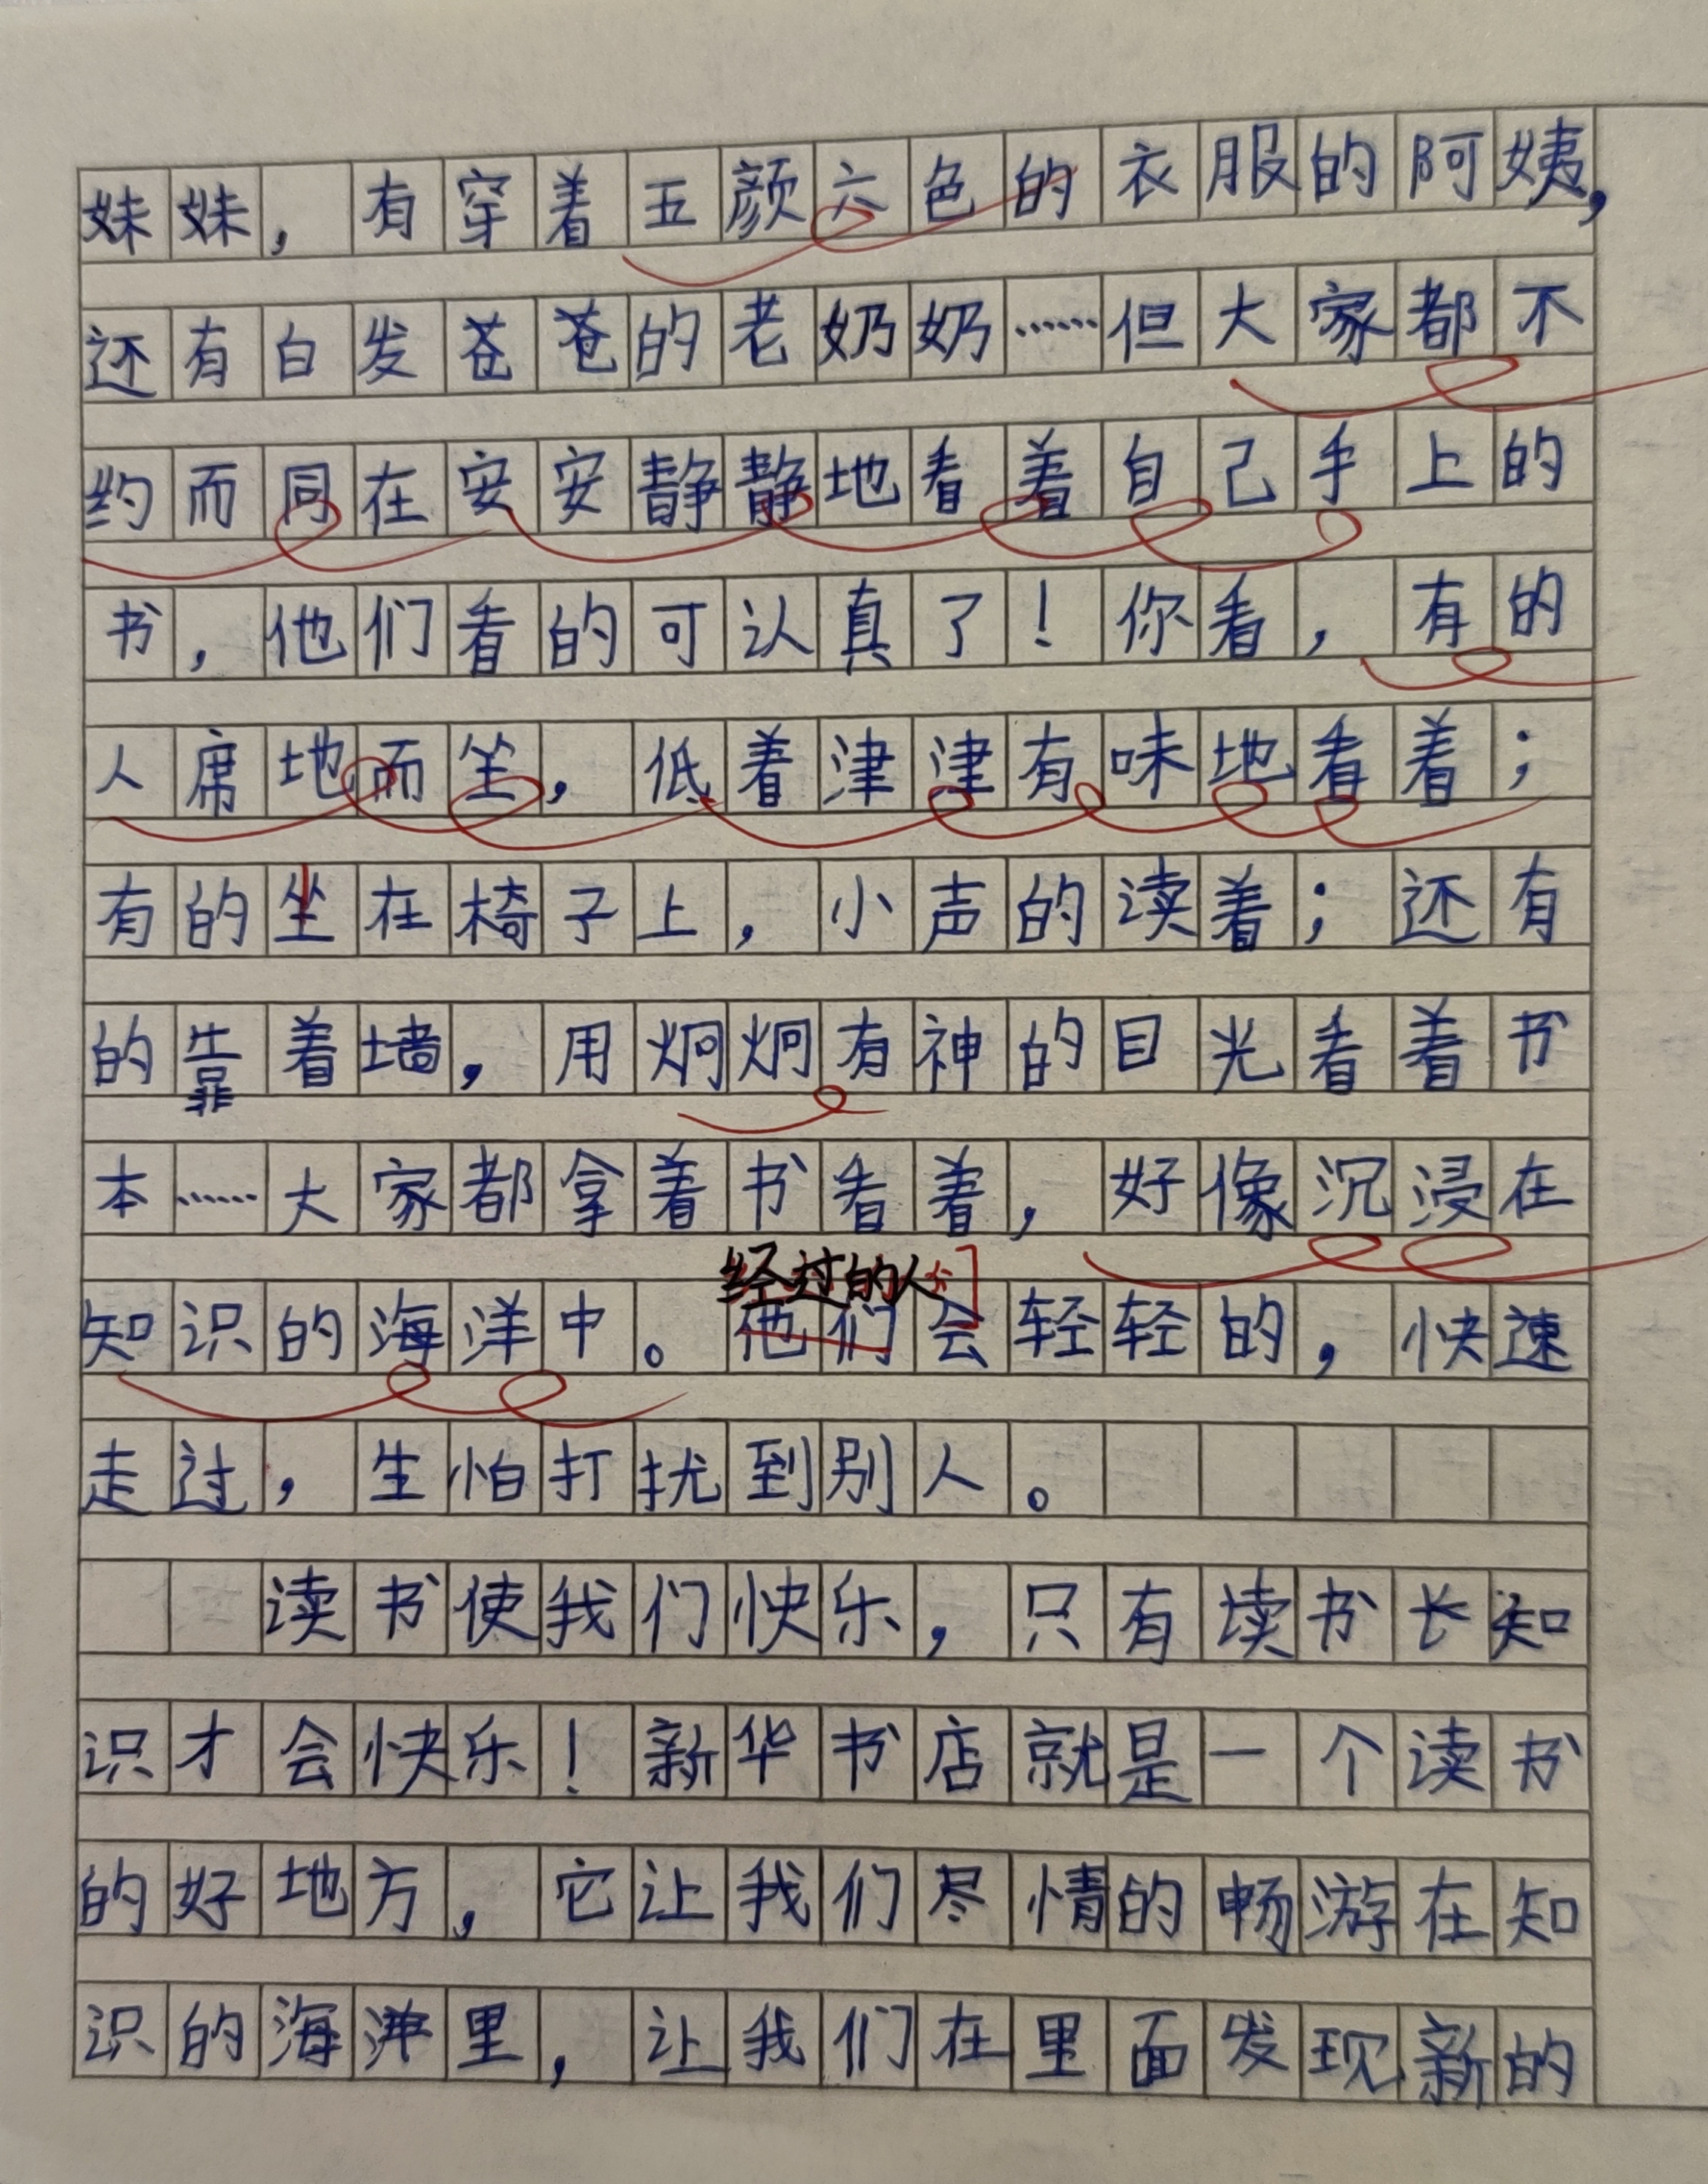 妹妹，有穿着五颜六色的衣服的阿姨，
还有白发苍苍的老奶奶……但大家都不
约而同在安安静静地看着自己手上的
书，他们看的可认真了！你看，有的
人席地而坐，低着津津有味地看着；
有的坐在椅子上，小声的读着；还有
的靠着墙，用炯炯有神的目光看着书
本……大家都拿着书看着，好像沉浸在
经过的人们
知识的海洋中。他们会轻轻的，快速
走过，生怕打扰到别人。
读书使我们快乐，只有读书长知
识才会快乐！新华书店就是一个读书
的好地方，它让我们尽情的畅游在知
识的海洋里，让我们在里面发现新的